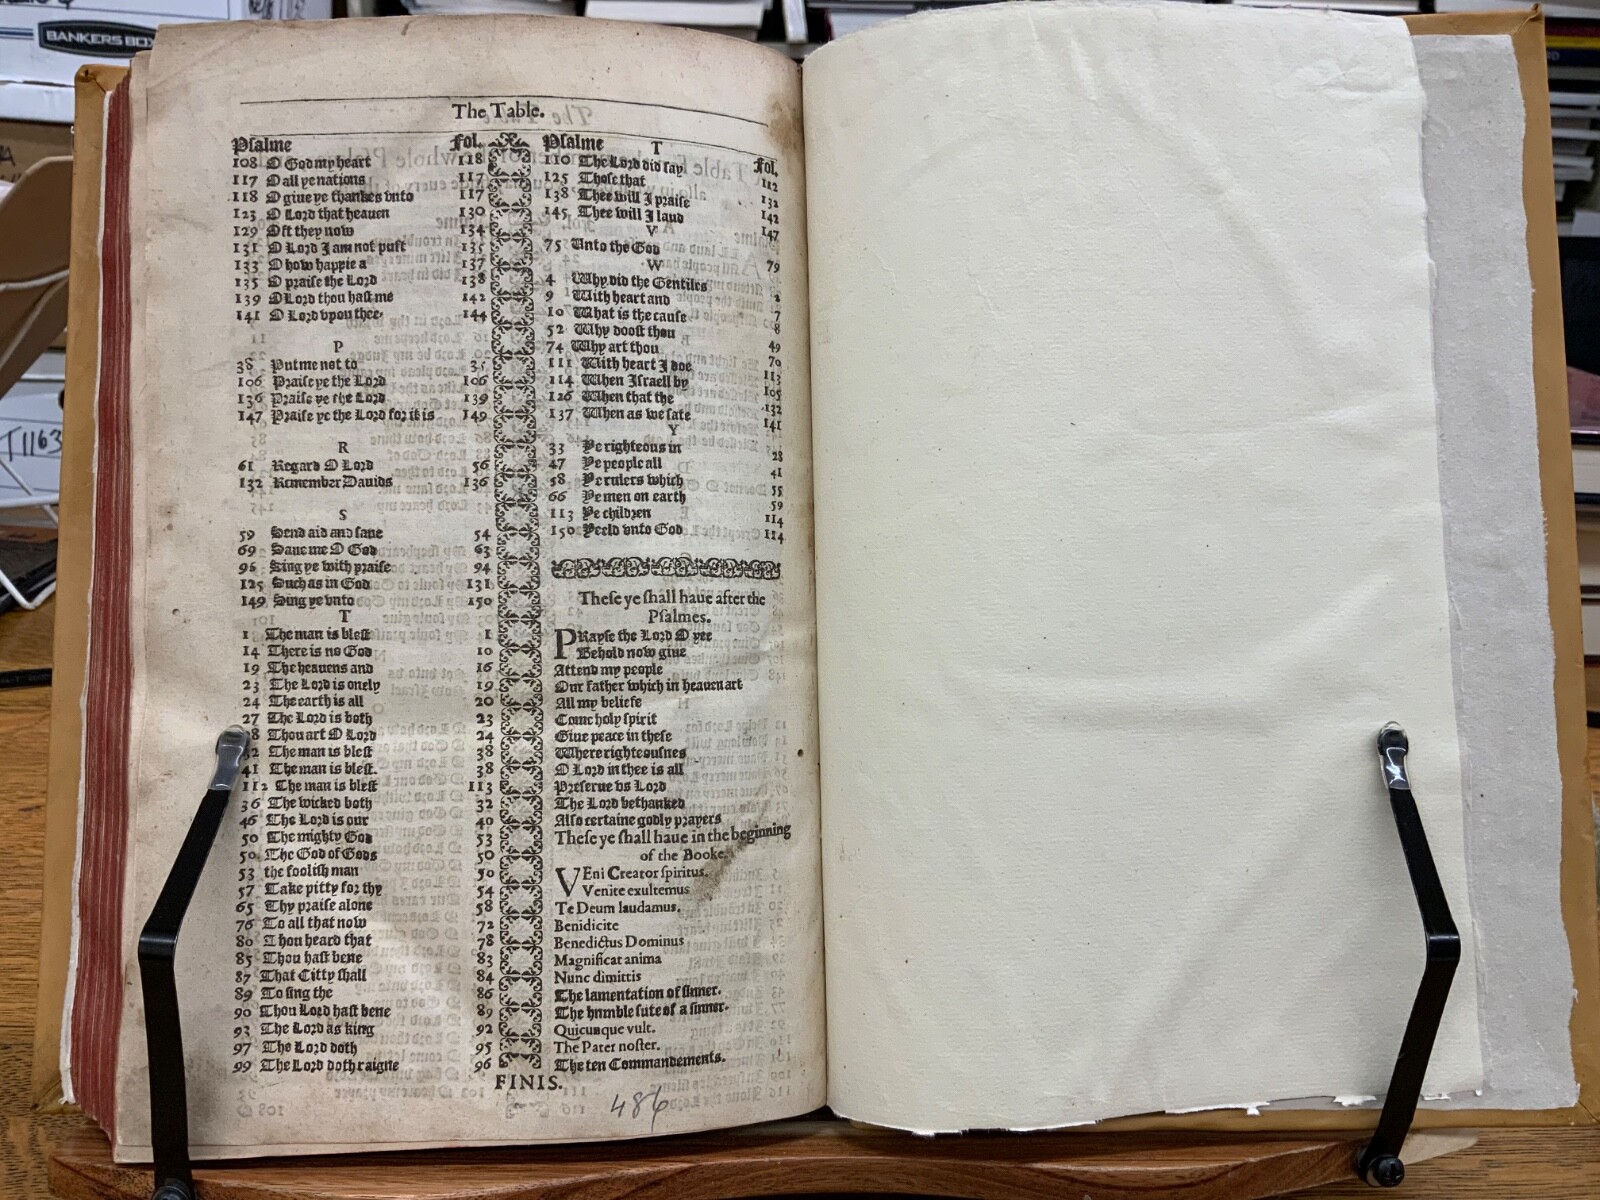 BANKERS BOX
T1163
The Table.
Psalme Fol.
108 O God my heart 118
117 O all ye nations 117
118 O giue ye thankes vnto 117
123 O Lord that heauen 130
129 Oft they now 134
131 O Lord I am not puft 135
133 O how happie a 137
135 O praise the Lord 138
139 O Lord thou hast me 142
141 O Lord vpon thee 144
P
38 Put me not to
106 Praise ye the Lord 106
136 Praise ye the Lord 139
147 Praise ye the Lord for it is 149
R
61 Regard O Lord 56
132 Remember Dauids 136
S
59 Send aid and saue 54
69 Saue me O God 63
96 Sing ye with praise 94
125 Such as in God 131
149 Sing ye vnto 150
T
1 The man is blest 1
14 There is no God 10
19 The heauens and 16
23 The Lord is onely 19
24 The earth is all 20
27 The Lord is both 23
8 Thou art O Lord 24
2 The man is blest 38
41 The man is blest. 38
112 The man is blest 113
36 The wicked both 32
46 The Lord is our 40
50 The mighty God 53
50 The God of Gods 50
53 the foolish man 50
57 Take pitty for thy 54
65 Thy praise alone 58
76 To all that now 72
80 Thou heard that 78
85 Thou hast bene 83
87 That Citty shall 84
89 To sing the 86
90 Thou Lord hast bene 89
93 The Lord as king 92
97 The Lord doth 95
99 The Lord doth raigne 96
Psalme T Fol.
110 The Lord did say 112
125 Those that 132
138 Thee will I praise 142
145 Thee will I laud 147
V
75 Unto the God 79
W
4 Why did the Gentiles 2
9 With heart and 7
10 What is the cause 8
52 Why doost thou 49
74 Why art thou 70
111 With heart I doe 113
114 When Israell by 105
126 When that the 132
137 When as we sate 141
Y
33 Ye righteous in 28
47 Ye people all 41
58 Ye rulers which 55
66 Ye men on earth 59
113 Ye children 114
150 Yeeld vnto God 114
These ye shall haue after the
Psalmes.
PRayse the Lord O yee
Behold now giue
Attend my people
Our father which in heauen art
All my beliefe
Come holy spirit
Giue peace in these
Where righteousnes
O Lord in thee is all
Preserue vs Lord
The Lord be thanked
Also certaine godly prayers
These ye shall haue in the beginning
of the Booke.
VEni Creator spiritus.
Venite exultemus
Te Deum laudamus.
Benidicite
Benedictus Dominus
Magnificat anima
Nunc dimittis
The lamentation of sinner.
The humble sute of a sinner.
Quicunque vult.
The Pater noster.
The ten Commandements.
FINIS.
486